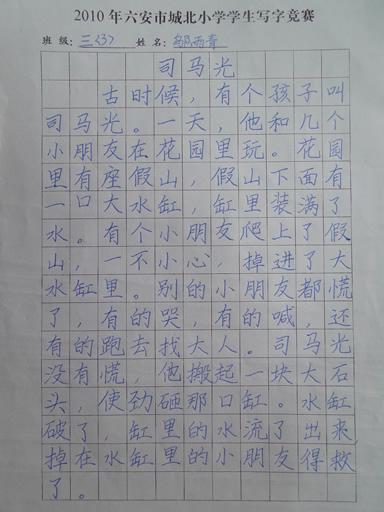 2010年六安市城北小学学生写字竞赛
班级:三(3) 姓名:邬西青
司马光
古时候,有个孩子叫
司马光。一天,他和几个
小朋友在花园里玩。花园
里有座假山,假山下面有
一口大水缸,缸里装满了
水。有个小朋友爬上了假
山,一不小心,掉进了大
水缸里。别的小朋友都慌
了,有的哭,有的喊,还
有的跑去找大人。司马光
没有慌,他搬起一块大石
头,使劲砸那口缸。水缸
破了,缸里的水流了出来
掉在水缸里的小朋友得救
了。